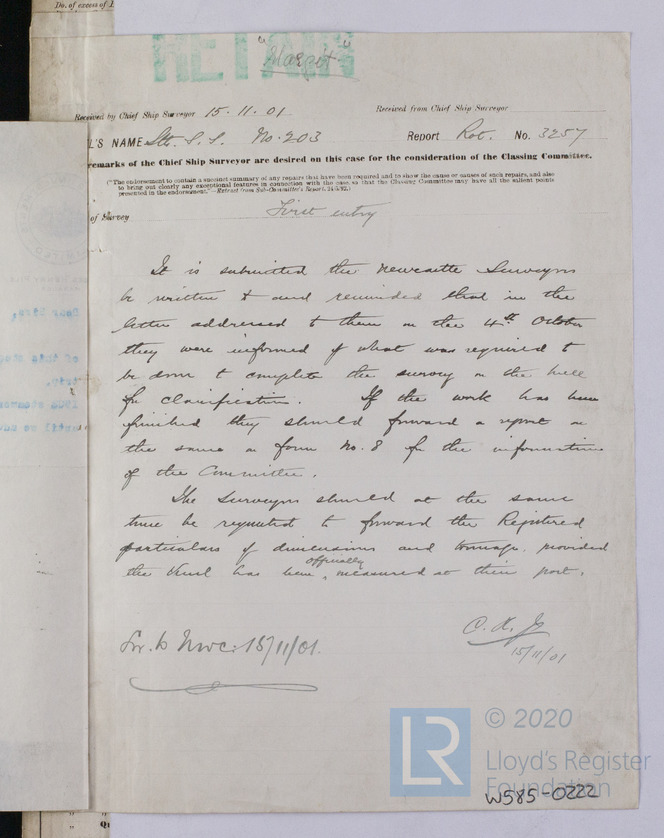 No. of excess of 1
RETAIN
"Margit"
Received by Chief Ship Surveyor 15.11.01 Received from Chief Ship Surveyor
L'S NAME Stl. S.S. No. 203 Report Rot. No. 3257
remarks of the Chief Ship Surveyor are desired on this case for the consideration of the Classing Committee.
("The endorsement to contain a succinct summary of any repairs that have been required and to show the cause or causes of such repairs, and also
to bring out clearly any exceptional features in connection with the case, so that the Classing Committee may have all the salient points
presented in the endorsement."—Extract from Sub-Committee's Report, 24/5/92.)
of Survey First entry
It is submitted the Newcastle Surveyors
be written to and reminded that in the
letter addressed to them on the 4th October
they were informed of what was required to
be done to complete the survey on the hull
for classification. If the work has been
finished they should forward a report on
the same on form No. 8 for the information
of the Committee.
The Surveyors should at the same
time be requested to forward the Registered
particulars of dimensions and tonnage, provided
officially
the Vessel has been, measured at their port.
15/11/01
Lr. to Nwc: 15/11/01.
LR
© 2020
Lloyd's Register
Foundation
W585-0222